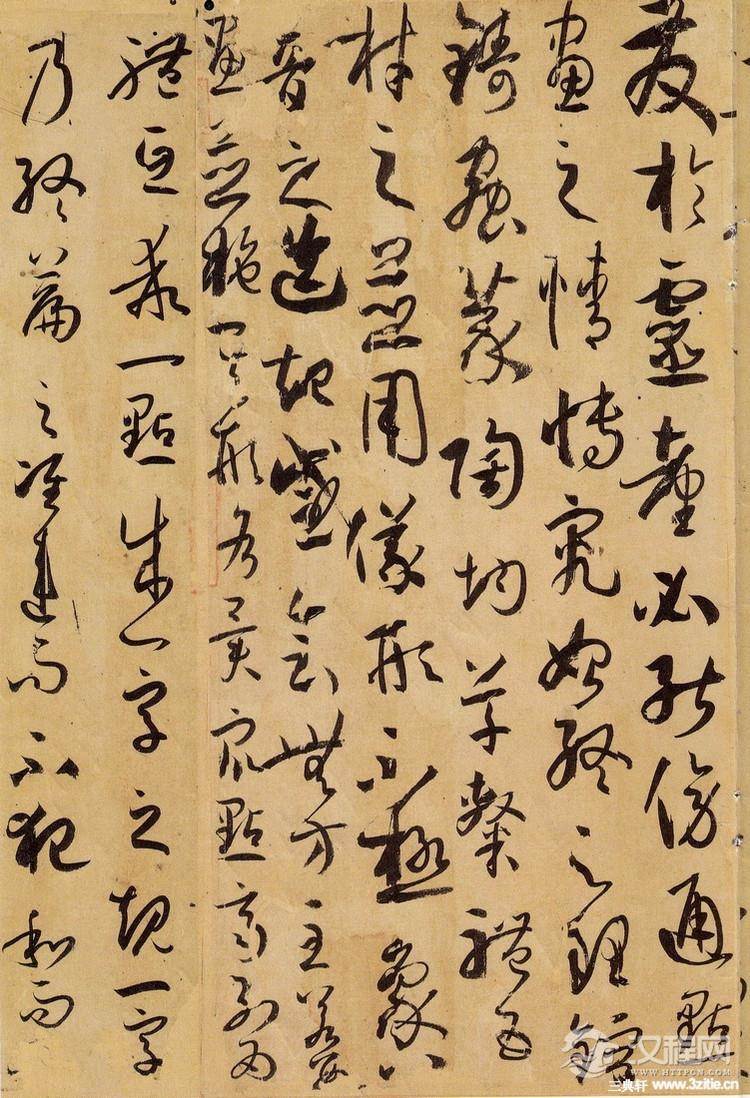 發於靈臺必能傍通點
畫之情博究始終之理鎔
鑄蟲篆陶均草隸體五
材之並用儀形不極象八
音之迭起感會無方至若數
畫並施其形各異眾點齊列為
體互乖一點成一字之規一字
乃終篇之准違而不犯和而
汉程网
WWW.HTTPCN.COM
三典轩 www.3zitie.cn